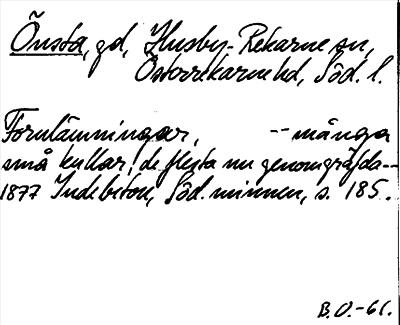 Önsta, gd, Husby-Rekarne sn,
Österrekarne hd, Söd. l.
Fornlämningar, -- många
små kullar, de flesta nu genomgräfda --
1877 Indebetou, Söd. minnen, s. 185.
B.O.-61.